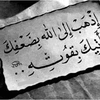 إذهَبْ إلى اللهِ بضَعفِكَ
يأتيكَ بقُوَّتِهِ...